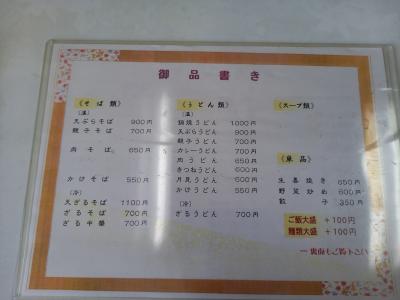 御品書き
《そば類》
(温)
天ぷらそば 900円
親子そば 700円
肉そば 650円
かけそば 550円
(冷)
天ざるそば 1100円
ざるそば 700円
ざる中華 700円
《うどん類》
(温)
鍋焼うどん 1000円
天ぷらうどん 900円
親子うどん 700円
カレーうどん 700円
肉うどん 650円
きつねうどん 600円
月見うどん 600円
かけうどん 550円
(冷)
ざるうどん 700円
《スープ類》
《単品》
生姜焼き 650円
野菜炒め 600円
餃子 350円
ご飯大盛 +100円
麺類大盛 +100円